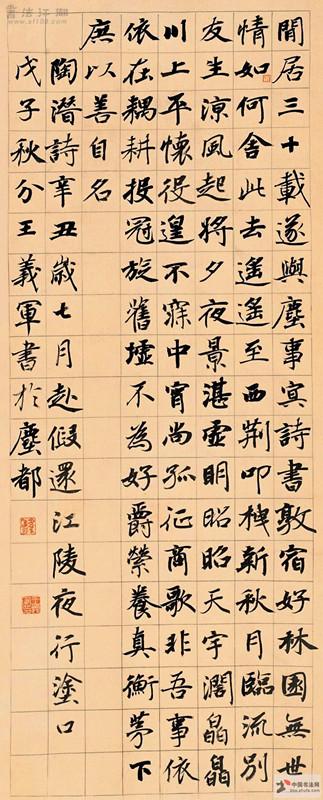 閒居三十載遂與塵事冥詩書敦宿好林園無世
情如何舍此去遙遙至西荆叩栧新秋月臨流別
友生涼風起將夕夜景湛虛明昭昭天宇闊皛皛
川上平懷役遑不寐中宵尚孤征商歌非吾事依
依在耦耕投冠旋舊墟不為好爵縈養真衡茅下
庶以善自名
陶潛詩辛丑歲七月赴假還江陵夜行塗口
戊子秋分王義軍書於都
中国书法网